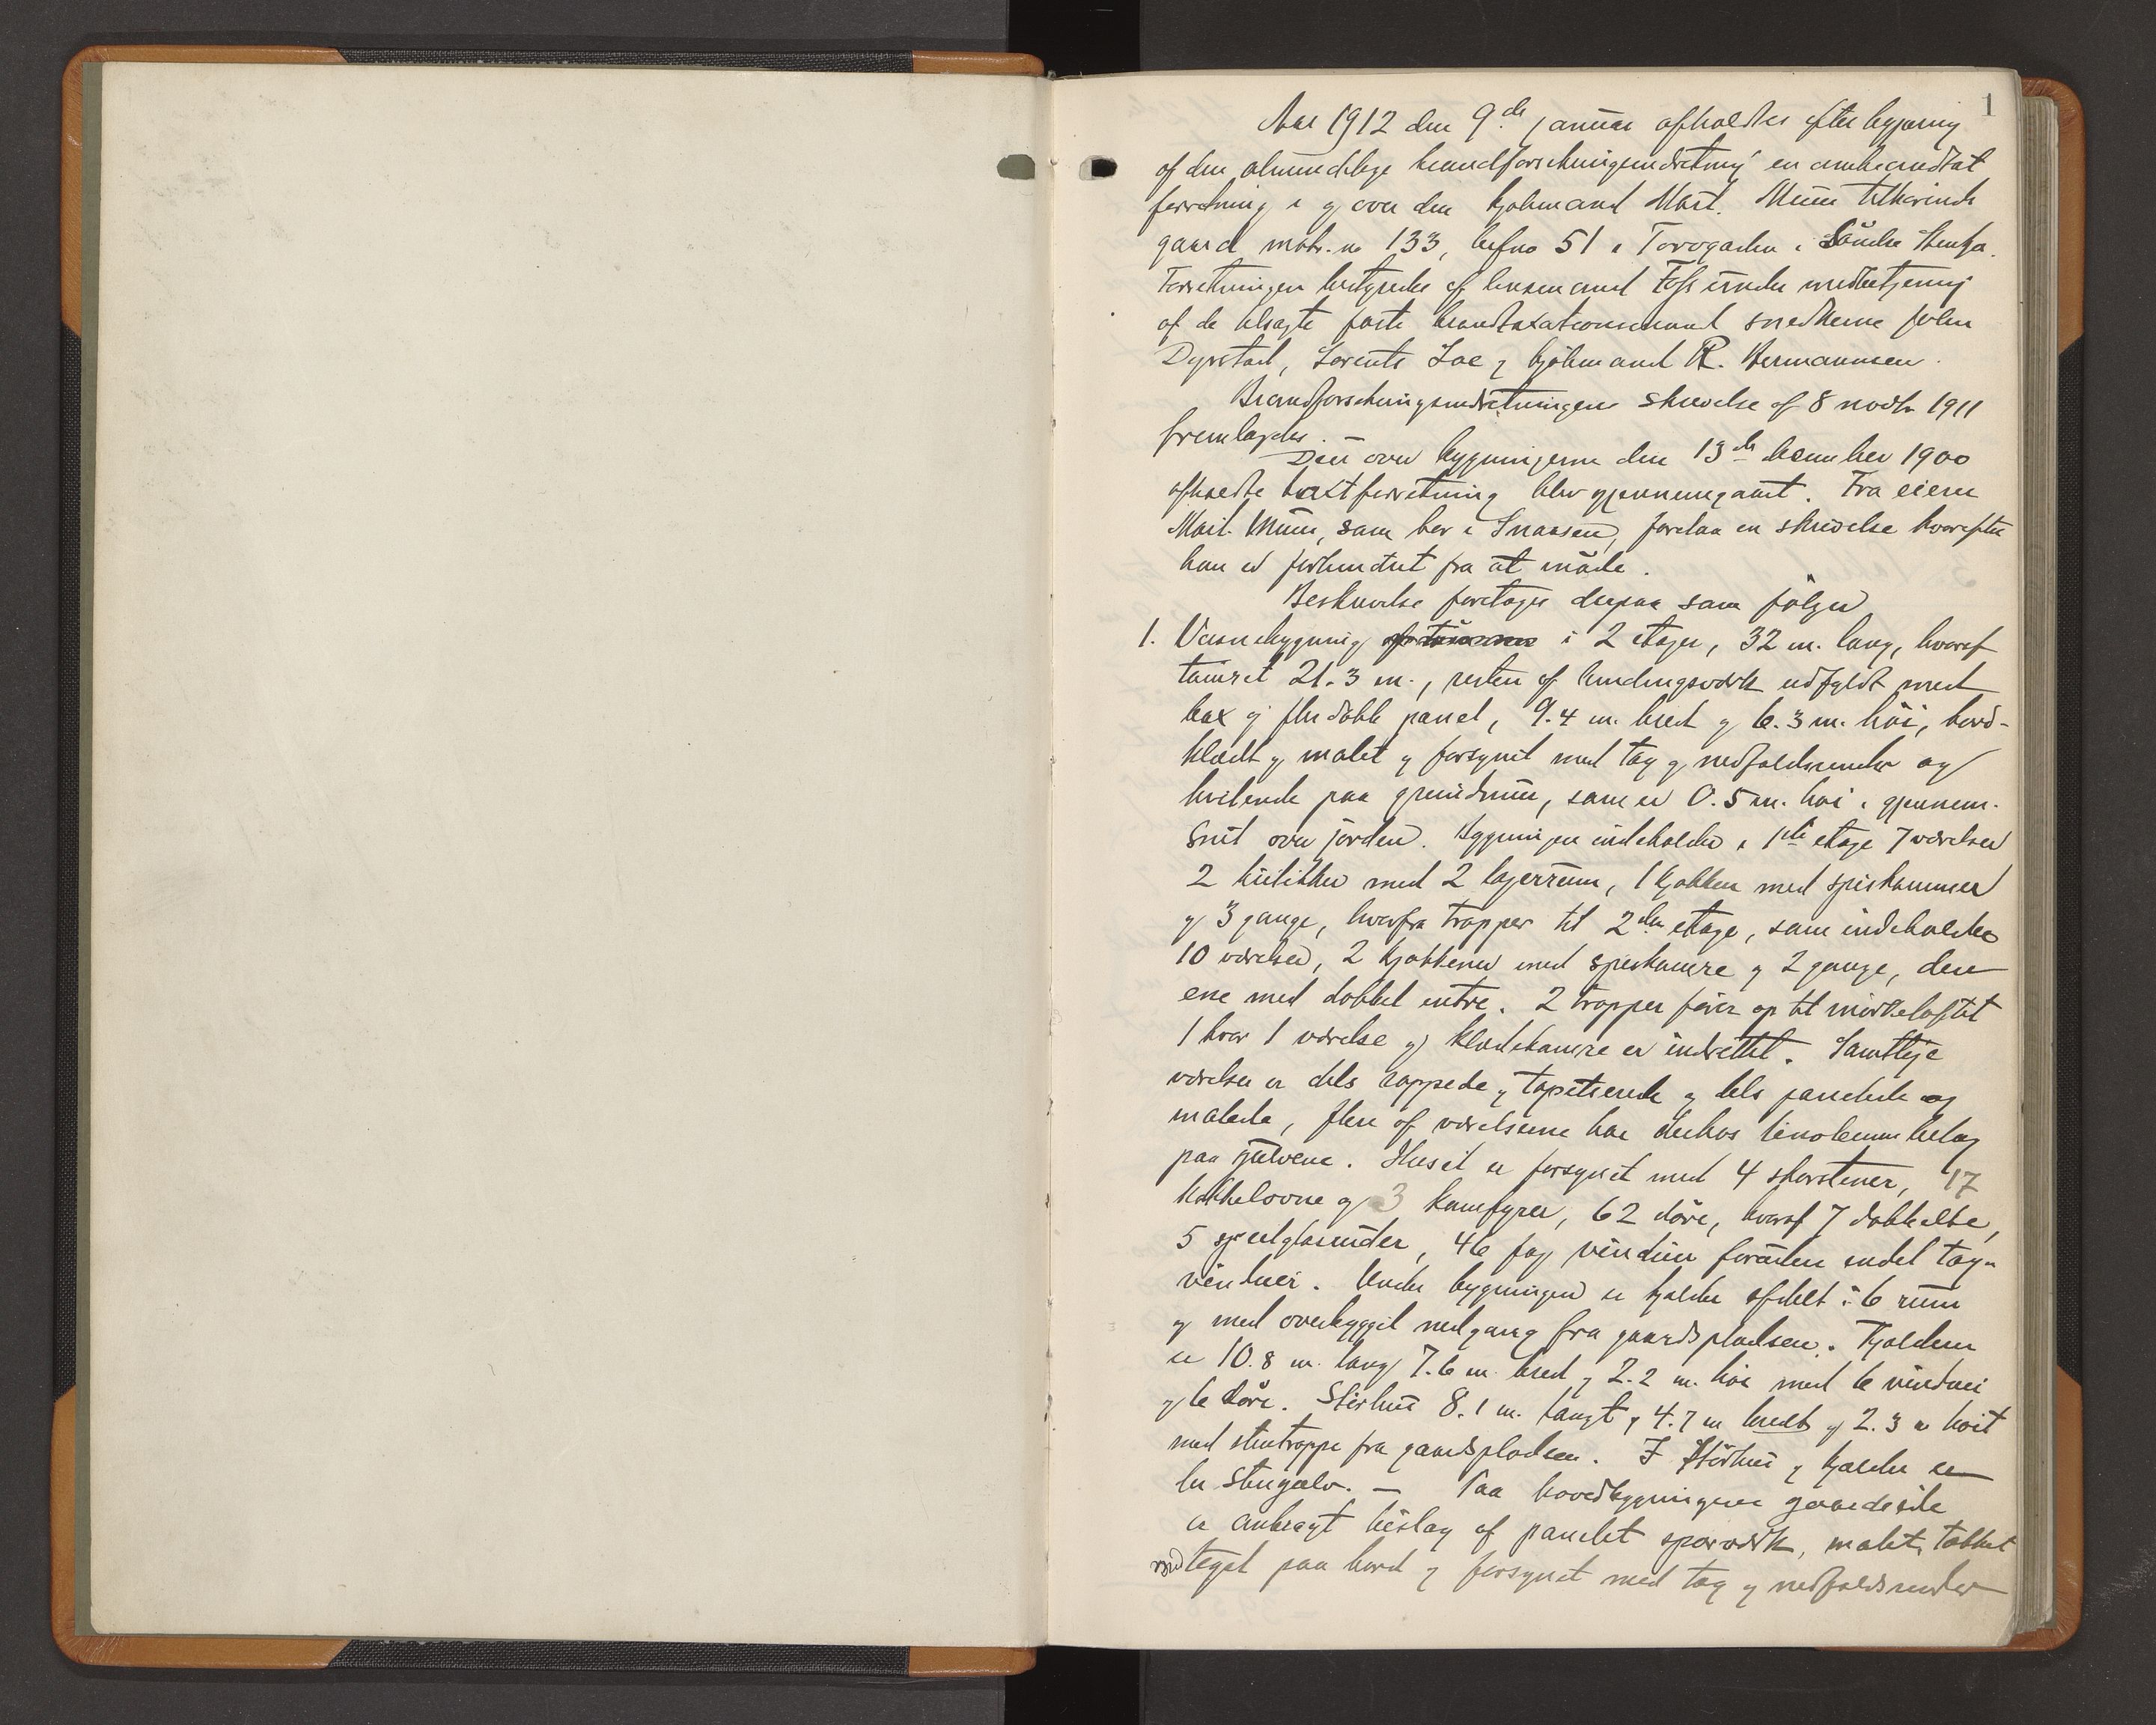 1
Aar 1912 den 9de januar afholdtes efter begjæring
af den almindelige brandforsikringsindretning en ombrandtaxt
forretning i og over den kjøbmand Mart. Muus tilhørende
gaard matr. no 133, brfno 51 i Torvgaden i Söndre Stenkjær.
Forretningen bestyredes af lensmand Foss under medbetjening
af de valgte faste brandtaxationsmænd snedkerne John
Dyrstad, Lorents Loe og kjöbmand R. Hermannsen.
Brandforsikringsindretningens skrivelse af 8 novbr 1911
fremlagdes. —
Den over bygningerne den 13de desember 1900
afholdte taxtforretning blev gjennemgaaet. Fra eieren
Mart. Muus, som bor i Snaasen, forelaa en skrivelse hvorefter
han er forhindret fra at möde.
Beskrivelse foretages derpaa som fölger
1. Vaanebygning af tömmer i 2 etager, 32 m. lang, hvoraf
tömret 21.3 m., resten af bindingsværk udfyldt med
bax og flerdobb. panel, 9.4 m. bred og 6.3 m. höi, bord-
klædt og malet og forsynet med tag og nedfaldsrender og
hvilende paa grundmur, som er 0.5 m. höi i gjennem-
snit over jorden. Bygningen indeholder i 1ste etage 7 værelser
2 butikker med 2 lagerrum, 1 kjøkken med spiskammer
og 3 gange, hvorfra trapper til 2den etage, som indeholder
10 værelser, 2 kjøkkener med spiskamre og 2 gange, den
ene med dobbel entre. 2 trapper förer op til mörkeloftet
i hvor 1 værelse og klædekamre er indrettet. Samtlige
værelser er dels rappede og tapetserede og dels panelede og
malede, flere af værelserne har derhos linoleumbelag
paa gulvene. Huset er forsynet med 4 skorstener, 17
kakkelovne og 3 komfyrer, 62 döre, hvoraf 7 dobbelte,
5 speilglasruder, 46 fag vinduer foruden endel tag-
vinduer. Under bygningen er kjælder afdelt i 6 rum
og med overbygget nedgang fra gaardspladsen. Kjælderen
er 10.8 m. lang 7.6 m. bred og 2.2 m. höi med 6 vinduer
og 6 döre. Störhus 8.1 m. langt, 4.7 m bredt og 2.3 m höit
med stentrappe fra gaardspladsen. I störhus og kjælder er
der stengulv. — Paa hovedbygningens gaardside
er anbragt bislag af panelet sparværk, malet, tækket
med tegel paa bord og forsynet med tag og nedfaldsrender